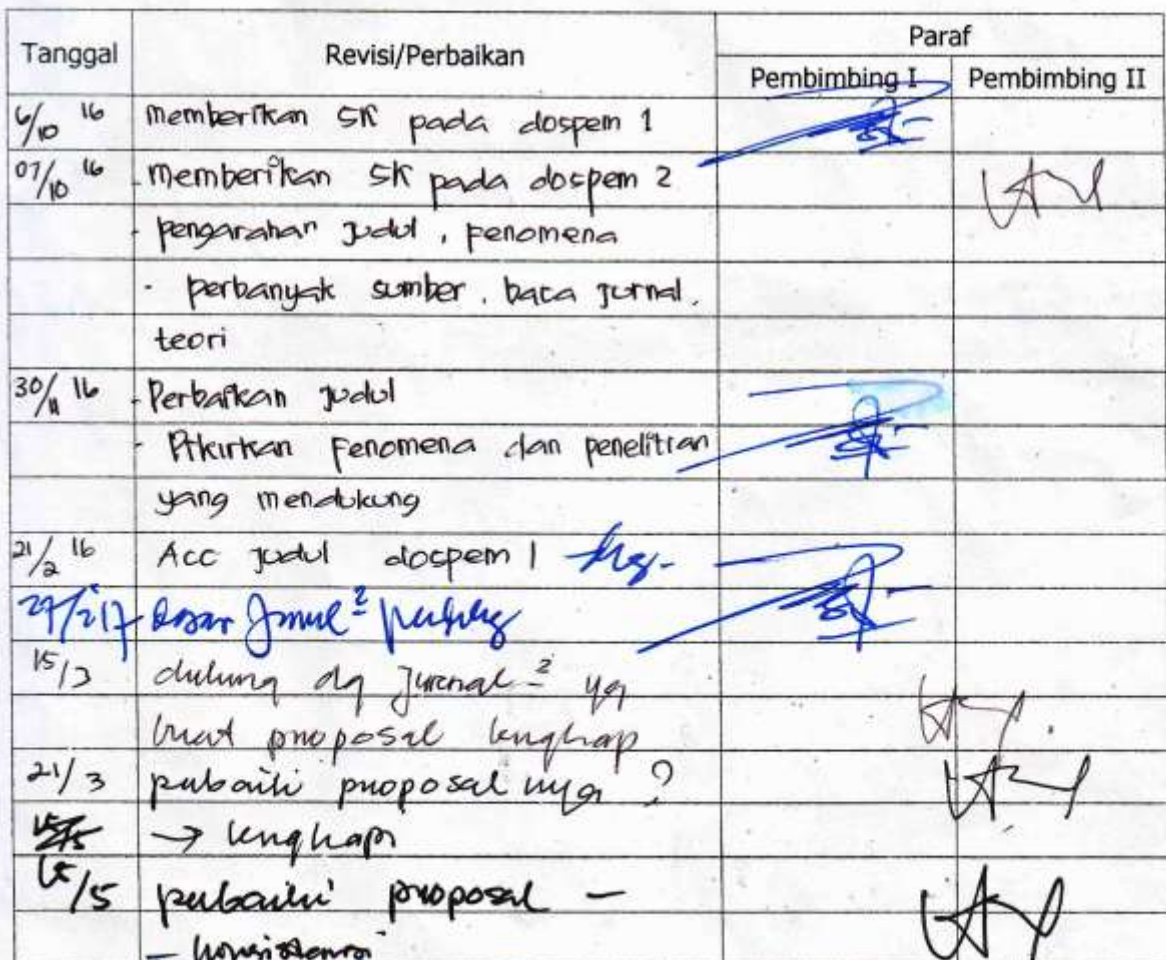 Tanggal Revisi/Perbaikan Paraf
Pembimbing I Pembimbing II
6/10 16 memberikan SK pada dospem 1
07/10 16 - memberikan SK pada dospem 2
- pengarahan judul, fenomena
- perbanyak sumber, baca jurnal,
teori
30/11 16 - Perbaikan judul
- Pikirkan fenomena dan penelitian
yang mendukung
21/2 16 Acc judul dospem 1
27/2 17
15/3 dukung dg jurnal2 yg
buat proposal lengkap
21/3 perbaiki proposal nya
→ lengkapi
15/5 perbaiki proposal -
- konsistensi